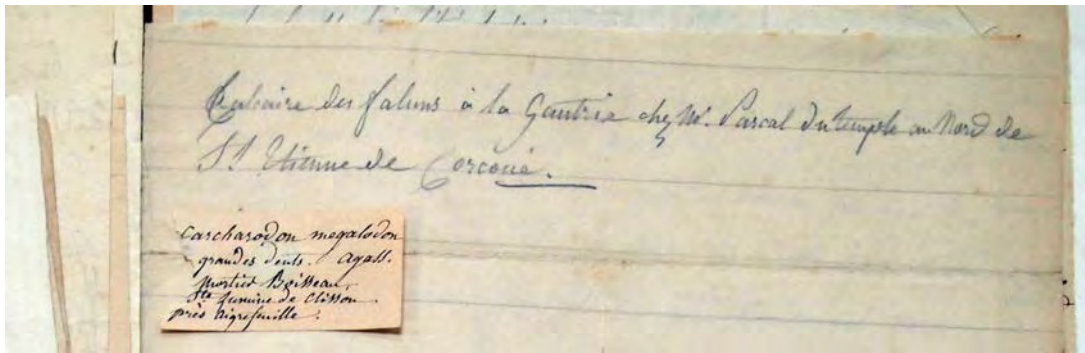 Calcaire des faluns à la Gautrie chez Mr. Pascal Dutemple au Nord de
St Etienne de Corcoué.
Carcharodon megalodon
grandes dents. Agass.
Mortier Boisseau,
Ste Lumine de Clisson.
près Aigrefeuille.